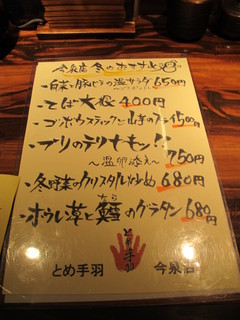 今泉店 冬のおすすめ
・白菜と豚バラの温サラダ 650円
・てば大根 400円
・ゴボウスティックと山芋のフライ 500円
・ブリのテリナキン!!
〜温卵添え〜
750円
・冬野菜のクリスタル炒め 680円
・ホウレン草と鱈のグラタン 680円
たら
とめ手羽
とめ手羽 今泉店